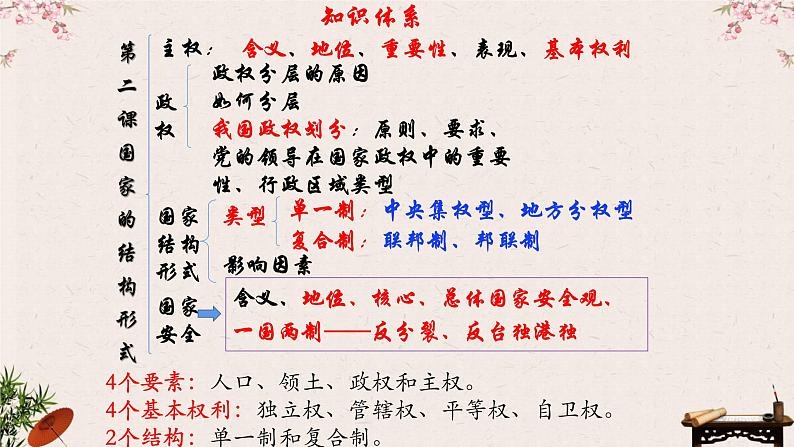 知识体系
第二课国家的结构形式
主权：含义、地位、重要性、表现、基本权利
政权
政权分层的原因
如何分层
我国政权划分：原则、要求、
党的领导在国家政权中的重要
性、行政区域类型
国家结构形式
类型
单一制：中央集权型、地方分权型
复合制：联邦制、邦联制
影响因素
国家安全
含义、地位、核心、总体国家安全观、
一国两制——反分裂、反台独港独
4个要素：人口、领土、政权和主权。
4个基本权利：独立权、管辖权、平等权、自卫权。
2个结构：单一制和复合制。